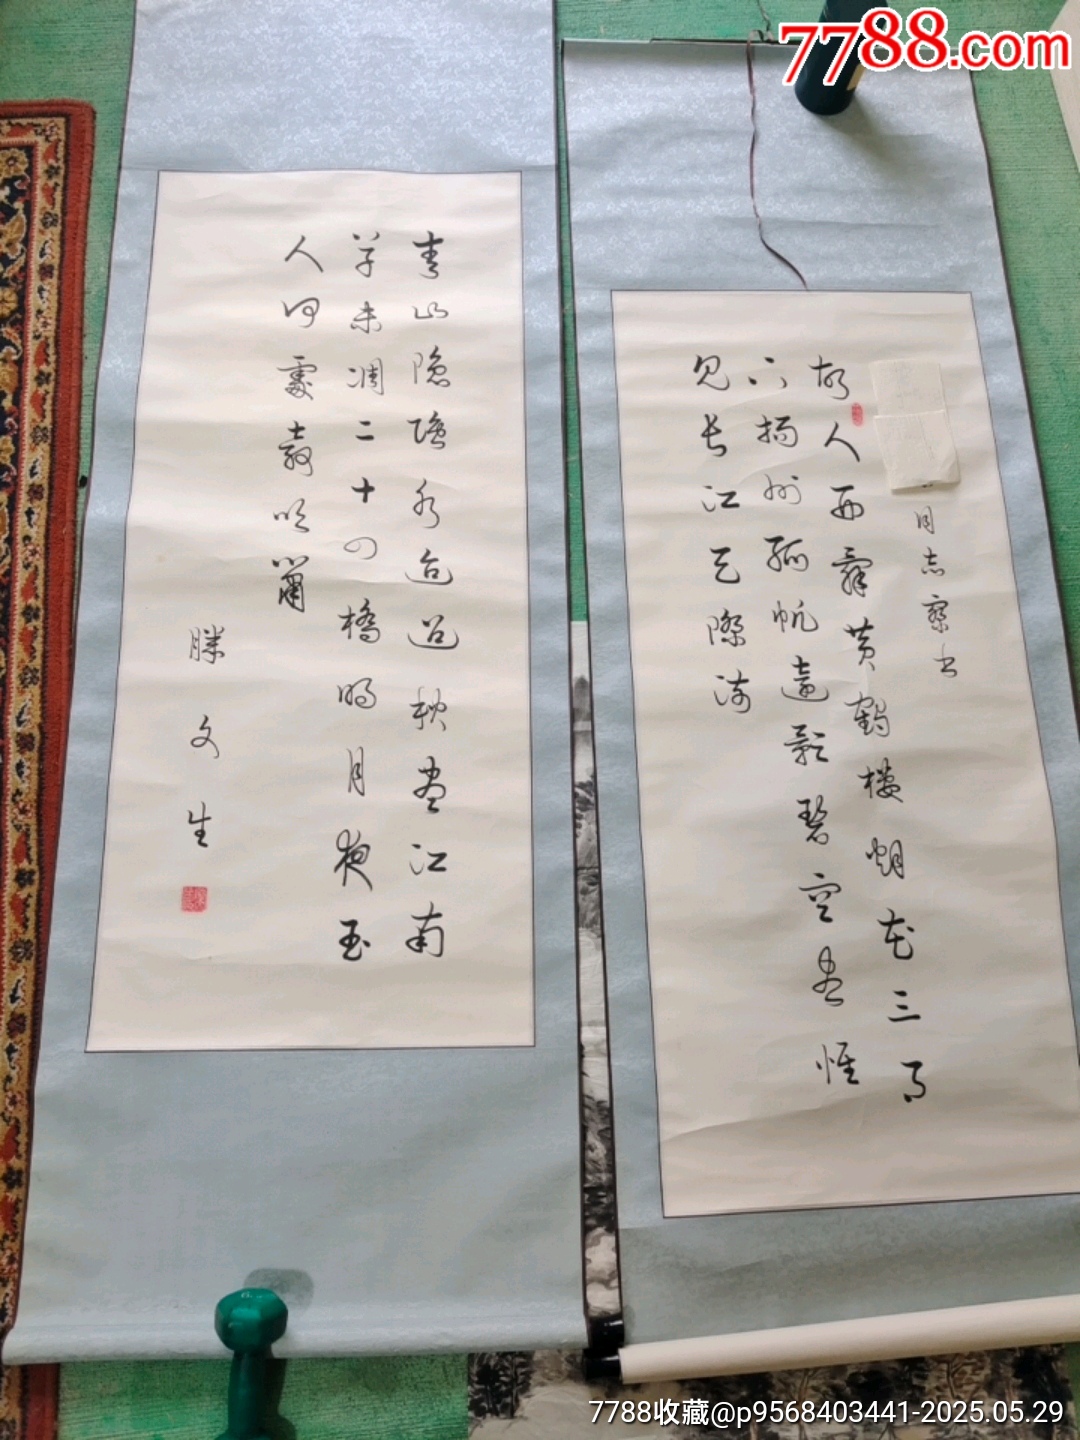 7788.com
同志察书
故人西辞黄鹤楼烟花三月
下扬州孤帆远影碧空尽惟
见长江天际流
青山隐隐水迢迢秋尽江南
草未凋二十四橋明月夜玉
人何處教吹箫
滕文生
7788收藏@p9568403441-2025.05.29